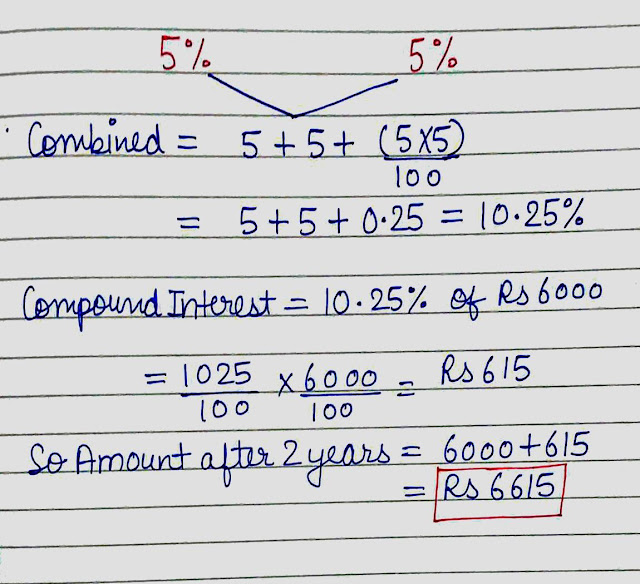 5% 5%
Combined = 5 + 5 + (5x5)
100
= 5 + 5 + 0.25 = 10.25%
Compound Interest = 10.25% of Rs 6000
= 1025 x 6000 = Rs 615
100 100
So Amount after 2 years = 6000+615
= Rs 6615